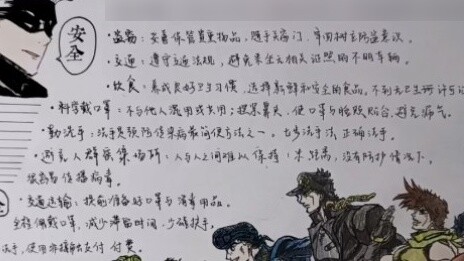 安全
·盗窃：妥善保管贵重物品，随手关房门，牢固树立防盗意识。
·交通：遵守交通法规，避免乘坐无相关证照的不明车辆。
·饮食：养成良好卫生习惯，选择新鲜和安全的食品。不到无卫生许可
·科学戴口罩：不与他人混用或共用；捏紧鼻夹，使口罩与脸颊贴合，避免漏气。
·勤洗手：洗手是预防传染病最简便方法之一。七步洗手法 正确洗手。
·避免人群密集场所：人与人之间难以保持1米距离，没有防护情况下，
容易传播病毒。
·交通运输：提前准备好口罩与消毒用品。
全程佩戴口罩，减少滞留时间，少碰扶手，
洗手，使用非接触支付 付费。
全